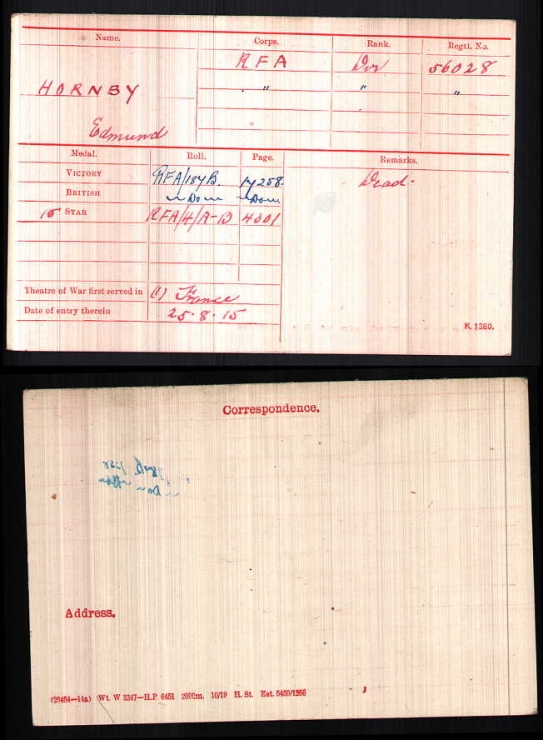 Name. Corps. Rank. Regtl. No.
RFA Dvr 56028
HORNBY " " "
Edmund
Medal. Roll. Page. Remarks.
VICTORY RFA/184B. 17258. Dead.
BRITISH —Do— —Do—
15 STAR RFA/4/A-B 4001
Theatre of War first served in (1) France
Date of entry therein 25.8.15
K. 1380.
Correspondence.
Address.
(25454—14a) Wt. W 3347—H.P. 6451 2000m. 10/19 H. St. Est. 5400/1266